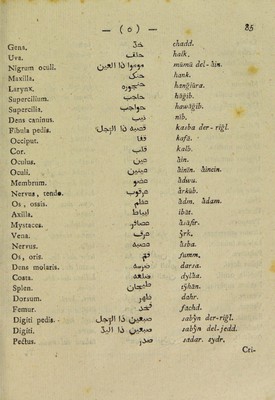 — ( o ) — 85
Gena. خد chadd.
Uva. حلف halk.
Nigrum oculi. موموا ذا العين mùmù del-ʾàin.
Maxilla. حنك hank.
Larynx. حنجوره hangiùra.
Supercilium. حاجب hàgib.
Supercilia. حواجب hawàgib.
Dens caninus. نيب nib.
Fibula pedis. قصبة ذا الرجل kasba der-rigl.
Occiput. قفا kafà.
Cor. قلب kalb.
Oculus. عين ʾàin.
Oculi. عينين ʾàinin. ʾàincin.
Membrum. عضو ʾàdwu.
Nervus, tendo. عرقوب ʾàrkùb.
Os, ossis. عظم ʾàdm. ʾàdam.
Axilla. اباط ibàt.
Mystaces. عصافر ʾàsàfir.
Vena. عرف ʾyrk.
Nervus. عصبه ʾàsba.
Os, oris. فم fumm.
Dens molaris. ضرسه darsa.
Costa. ضلعه dylʾàa.
Splen. طيحان tÿhàn.
Dorsum. ظهر dahr.
Femur. فخذ fachd.
Digiti pedis. صبعين ذا الرجل sabÿn der-rigl.
Digiti. صبعين ذا اليد sabÿn del-jedd.
Pectus. صدر sadar. sydr.
Cri-